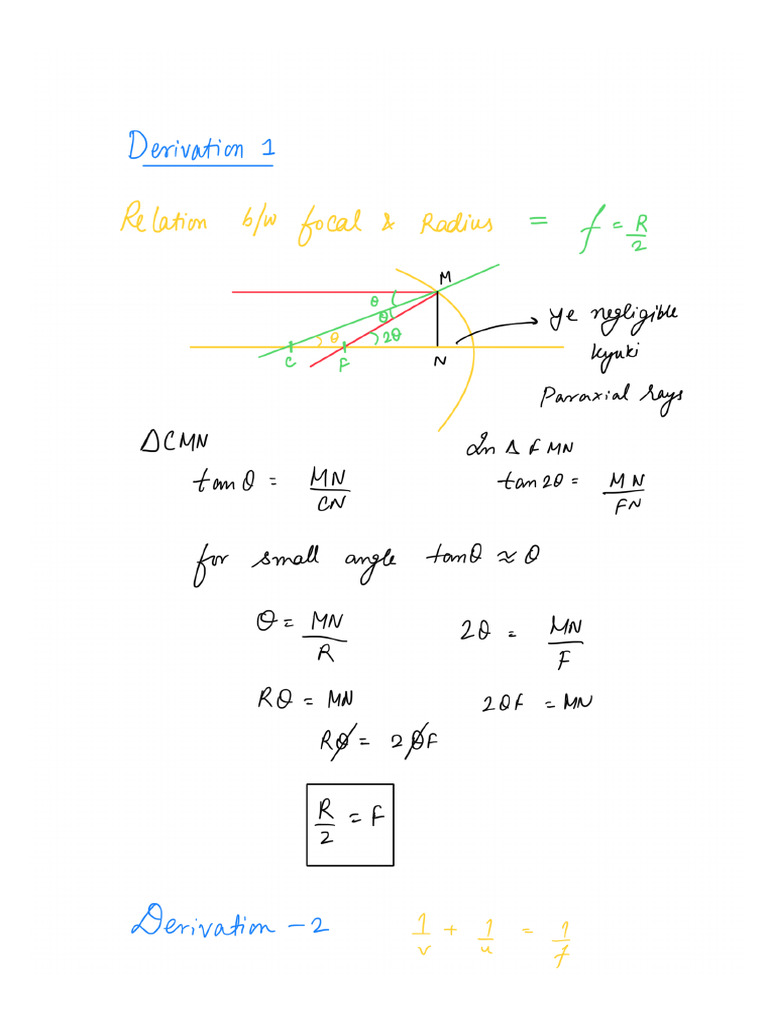 Derivation 1
Relation b/w focal & Radius = f = R/2
M
θ
θ
θ 2θ
C F N
ye negligible
kyuki
Paraxial rays
ΔCMN In Δ FMN
tanθ = MN/CN tan2θ = MN/FN
for small angle tanθ ≈ θ
θ = MN/R 2θ = MN/F
Rθ = MN 2θF = MN
Rθ = 2θF
R/2 = F
Derivation -2 1/v + 1/u = 1/f